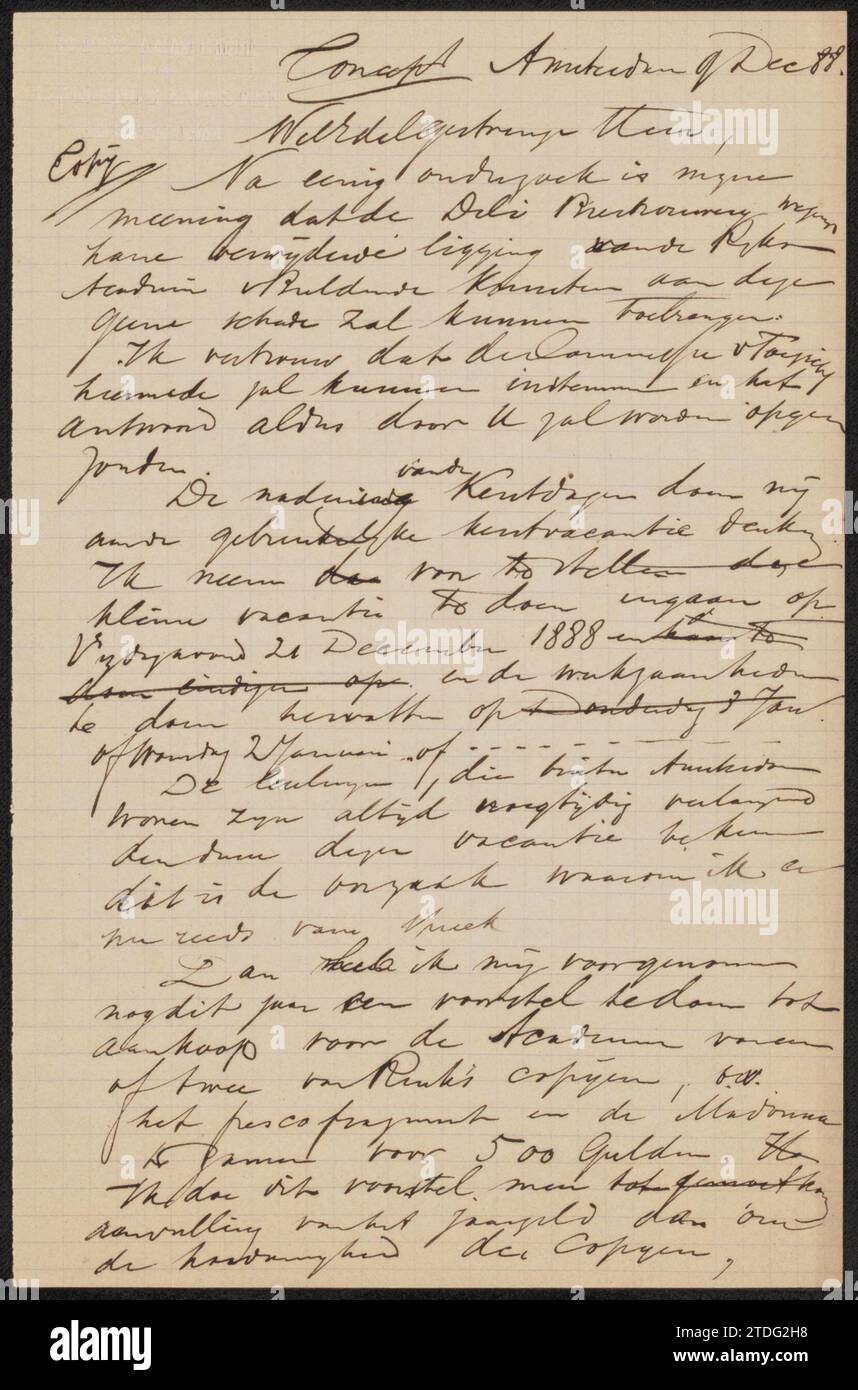 Concept Amsterdam 9 Dec 88.
WelEdelgestrenge Heer,
Copij
Na eenig onderzoek is mijne
meening dat de Deli Bierbrouwerij wegens
hare verwijderde ligging van de Rijks
Academie v Beeldende Kunsten aan deze
geene schade zal kunnen toebrengen.
Ik vertrouw dat de Commissie v Toezicht
hiermede zal kunnen instemmen en het
antwoord aldus door U zal worden opge
zonden.
De nadering van de Kerstdagen doen mij
aan de gebruikelijke kerstvacantie denken
Ik neem voor te stellen deze
kleine vacantie te doen ingaan op
Vrijdagavond 21 December 1888 en
doen eindigen op en de werkzaamheden
te doen hervatten op Donderdag 3 Jan.
of Woensdag 2 Januari of
De leerlingen, die buiten Amsterdam
wonen zijn altijd vroegtijdig verlangend
den duur dezer vacantie te kennen
dit is de oorzaak waarom ik er
nu reeds van spreek
Dan heb ik mij voorgenomen
nog dit jaar een voorstel te doen tot
aankoop voor de Academie van een
of twee van copijen, o.a.
het frescofragment en de Madonna
te zamen voor 500 Gulden
Ik doe dit voorstel meer tot
aanvulling van het jaargeld dan om
de der Copijen,
alamy
Image ID: 2TDG2H8
www.alamy.com